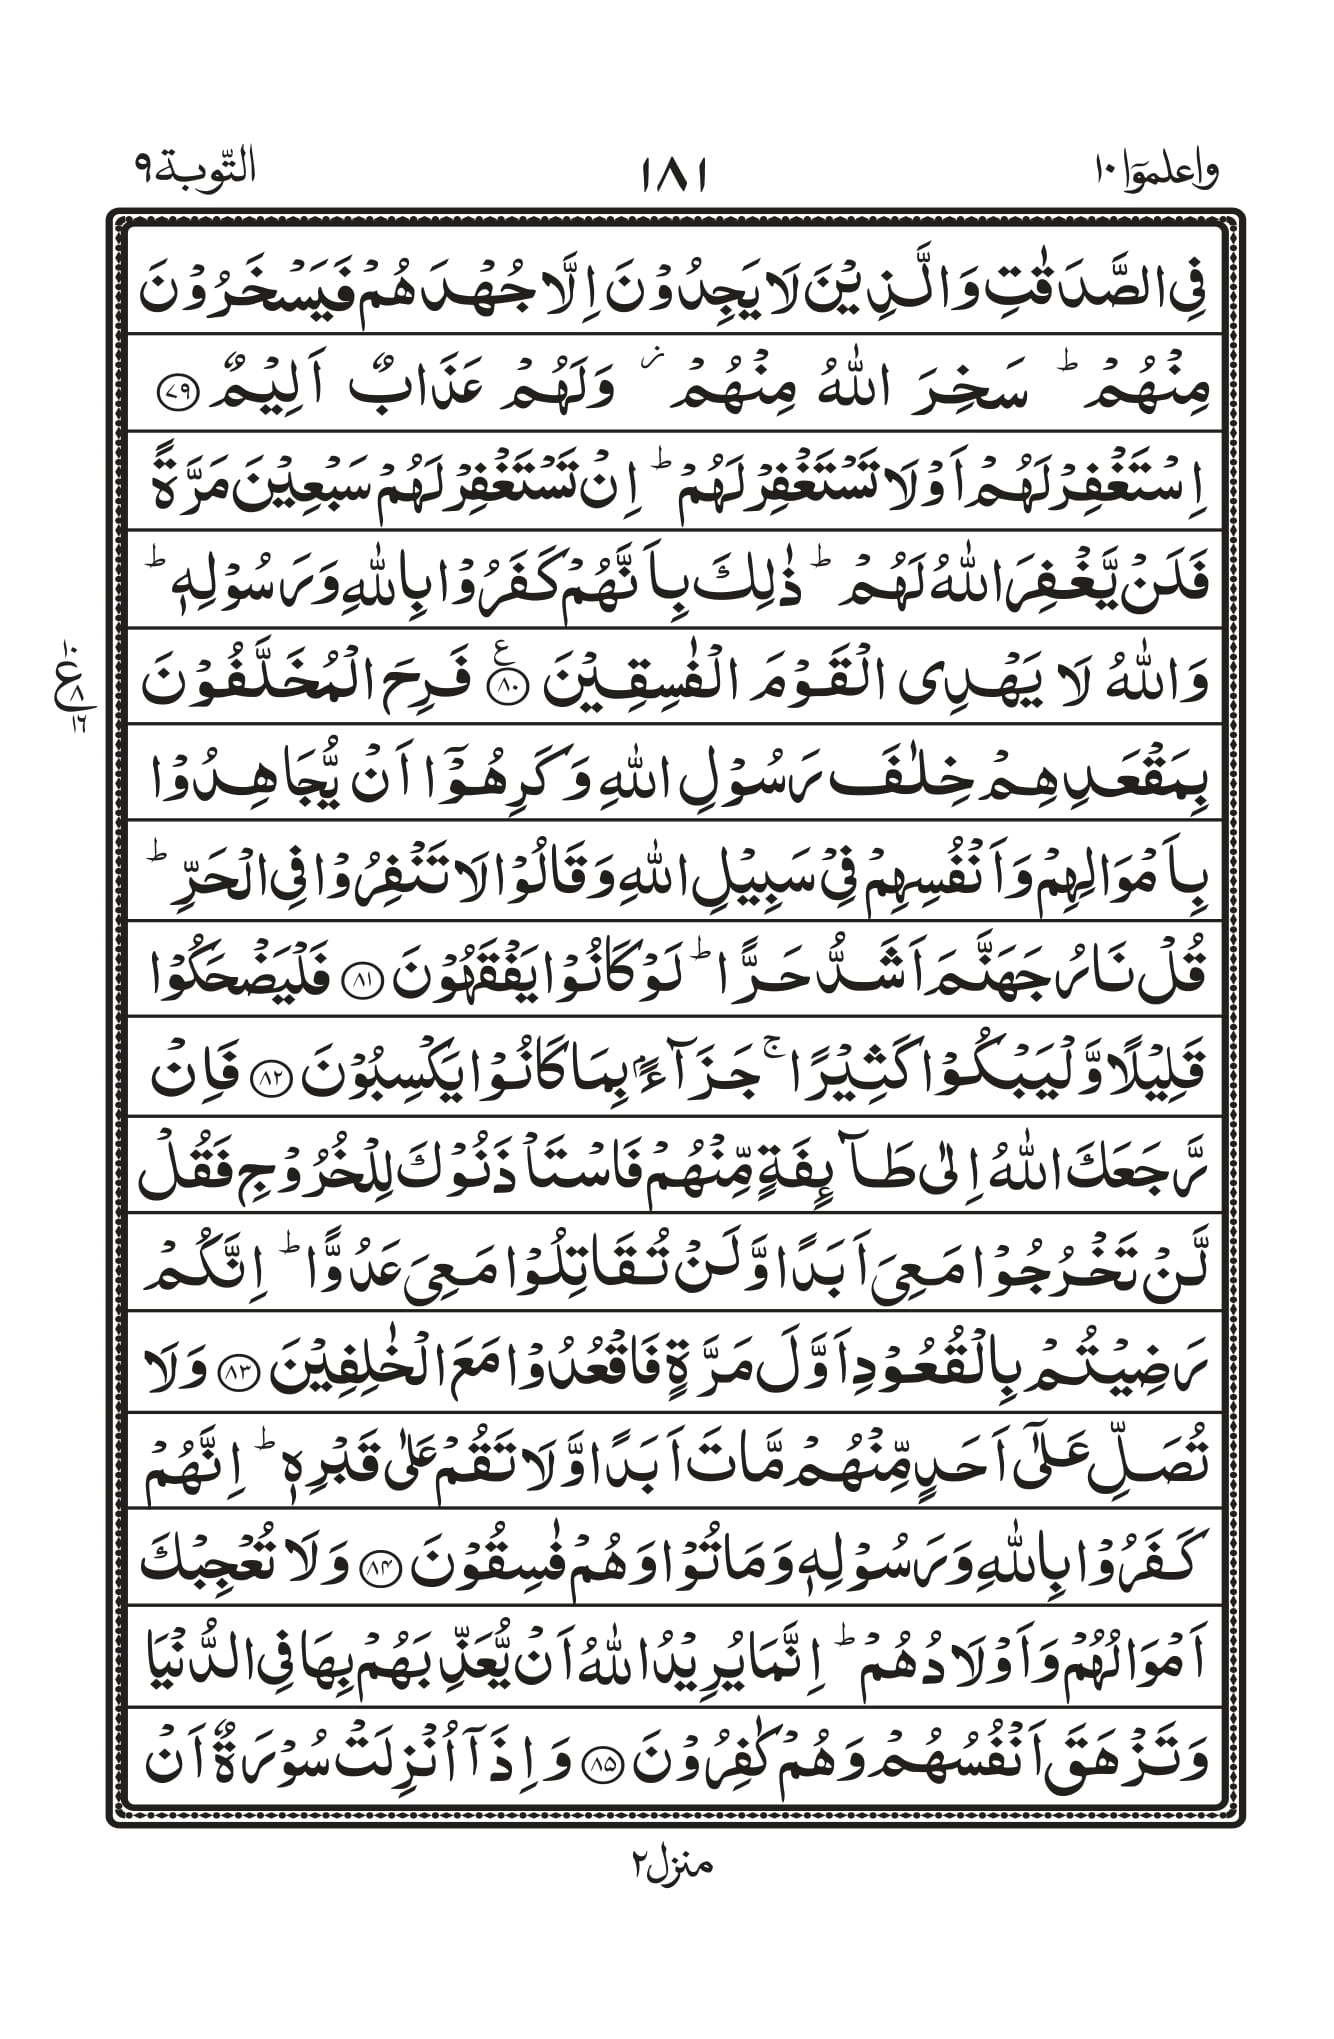 واعلموٓا ١٠
١٨١
التّوبة ٩
فِى الصَّدَقٰتِ وَالَّذِيْنَ لَا يَجِدُوْنَ اِلَّا جُهْدَهُمْ فَيَسْخَرُوْنَ
مِنْهُمْ ؕ سَخِرَ اللّٰهُ مِنْهُمْ ؗ وَلَهُمْ عَذَابٌ اَلِيْمٌ ﴿۷۹﴾
اِسْتَغْفِرْ لَهُمْ اَوْ لَا تَسْتَغْفِرْ لَهُمْ ؕ اِنْ تَسْتَغْفِرْ لَهُمْ سَبْعِيْنَ مَرَّةً
فَلَنْ يَّغْفِرَ اللّٰهُ لَهُمْ ؕ ذٰلِكَ بِاَنَّهُمْ كَفَرُوْا بِاللّٰهِ وَرَسُوْلِهٖ ؕ
وَاللّٰهُ لَا يَهْدِى الْقَوْمَ الْفٰسِقِيْنَ ﴿۸۰﴾ ع فَرِحَ الْمُخَلَّفُوْنَ
ع ٨ ١٦
بِمَقْعَدِهِمْ خِلٰفَ رَسُوْلِ اللّٰهِ وَكَرِهُوْٓا اَنْ يُّجَاهِدُوْا
بِاَمْوَالِهِمْ وَاَنْفُسِهِمْ فِىْ سَبِيْلِ اللّٰهِ وَقَالُوْا لَا تَنْفِرُوْا فِى الْحَرِّ ؕ
قُلْ نَارُ جَهَنَّمَ اَشَدُّ حَرًّا ؕ لَوْ كَانُوْا يَفْقَهُوْنَ ﴿۸۱﴾ فَلْيَضْحَكُوْا
قَلِيْلًا وَّلْيَبْكُوْا كَثِيْرًا ۚ جَزَآءًۢ بِمَا كَانُوْا يَكْسِبُوْنَ ﴿۸۲﴾ فَاِنْ
رَّجَعَكَ اللّٰهُ اِلٰى طَآٮِٕفَةٍ مِّنْهُمْ فَاسْتَاْذَنُوْكَ لِلْخُرُوْجِ فَقُلْ
لَّنْ تَخْرُجُوْا مَعِىَ اَبَدًا وَّلَنْ تُقَاتِلُوْا مَعِىَ عَدُوًّا ؕ اِنَّكُمْ
رَضِيْتُمْ بِالْقُعُوْدِ اَوَّلَ مَرَّةٍ فَاقْعُدُوْا مَعَ الْخٰلِفِيْنَ ﴿۸۳﴾ وَلَا
تُصَلِّ عَلٰٓى اَحَدٍ مِّنْهُمْ مَّاتَ اَبَدًا وَّلَا تَقُمْ عَلٰى قَبْرِهٖ ؕ اِنَّهُمْ
كَفَرُوْا بِاللّٰهِ وَرَسُوْلِهٖ وَمَاتُوْا وَهُمْ فٰسِقُوْنَ ﴿۸۴﴾ وَلَا تُعْجِبْكَ
اَمْوَالُهُمْ وَاَوْلَادُهُمْ ؕ اِنَّمَا يُرِيْدُ اللّٰهُ اَنْ يُّعَذِّبَهُمْ بِهَا فِى الدُّنْيَا
وَتَزْهَقَ اَنْفُسُهُمْ وَهُمْ كٰفِرُوْنَ ﴿۸۵﴾ وَاِذَآ اُنْزِلَتْ سُوْرَةٌ اَنْ
منزل ٢